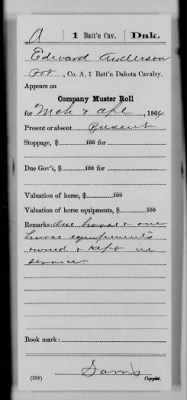 A | 1 Batt'n Cav. | Dak.
Edward Anderson
Pvt, Co. A, 1 Batt'n Dakota Cavalry.
Appears on
Company Muster Roll
for Mch & Apl, 1864.
Present or absent Present
Stoppage, $ 100 for
Due Gov't, $ 100 for
Valuation of horse, $ 100
Valuation of horse equipments, $ 100
Remarks: One horse & one
horse equipments
owned & kept in
service
Book mark:
(359)
Copyist.